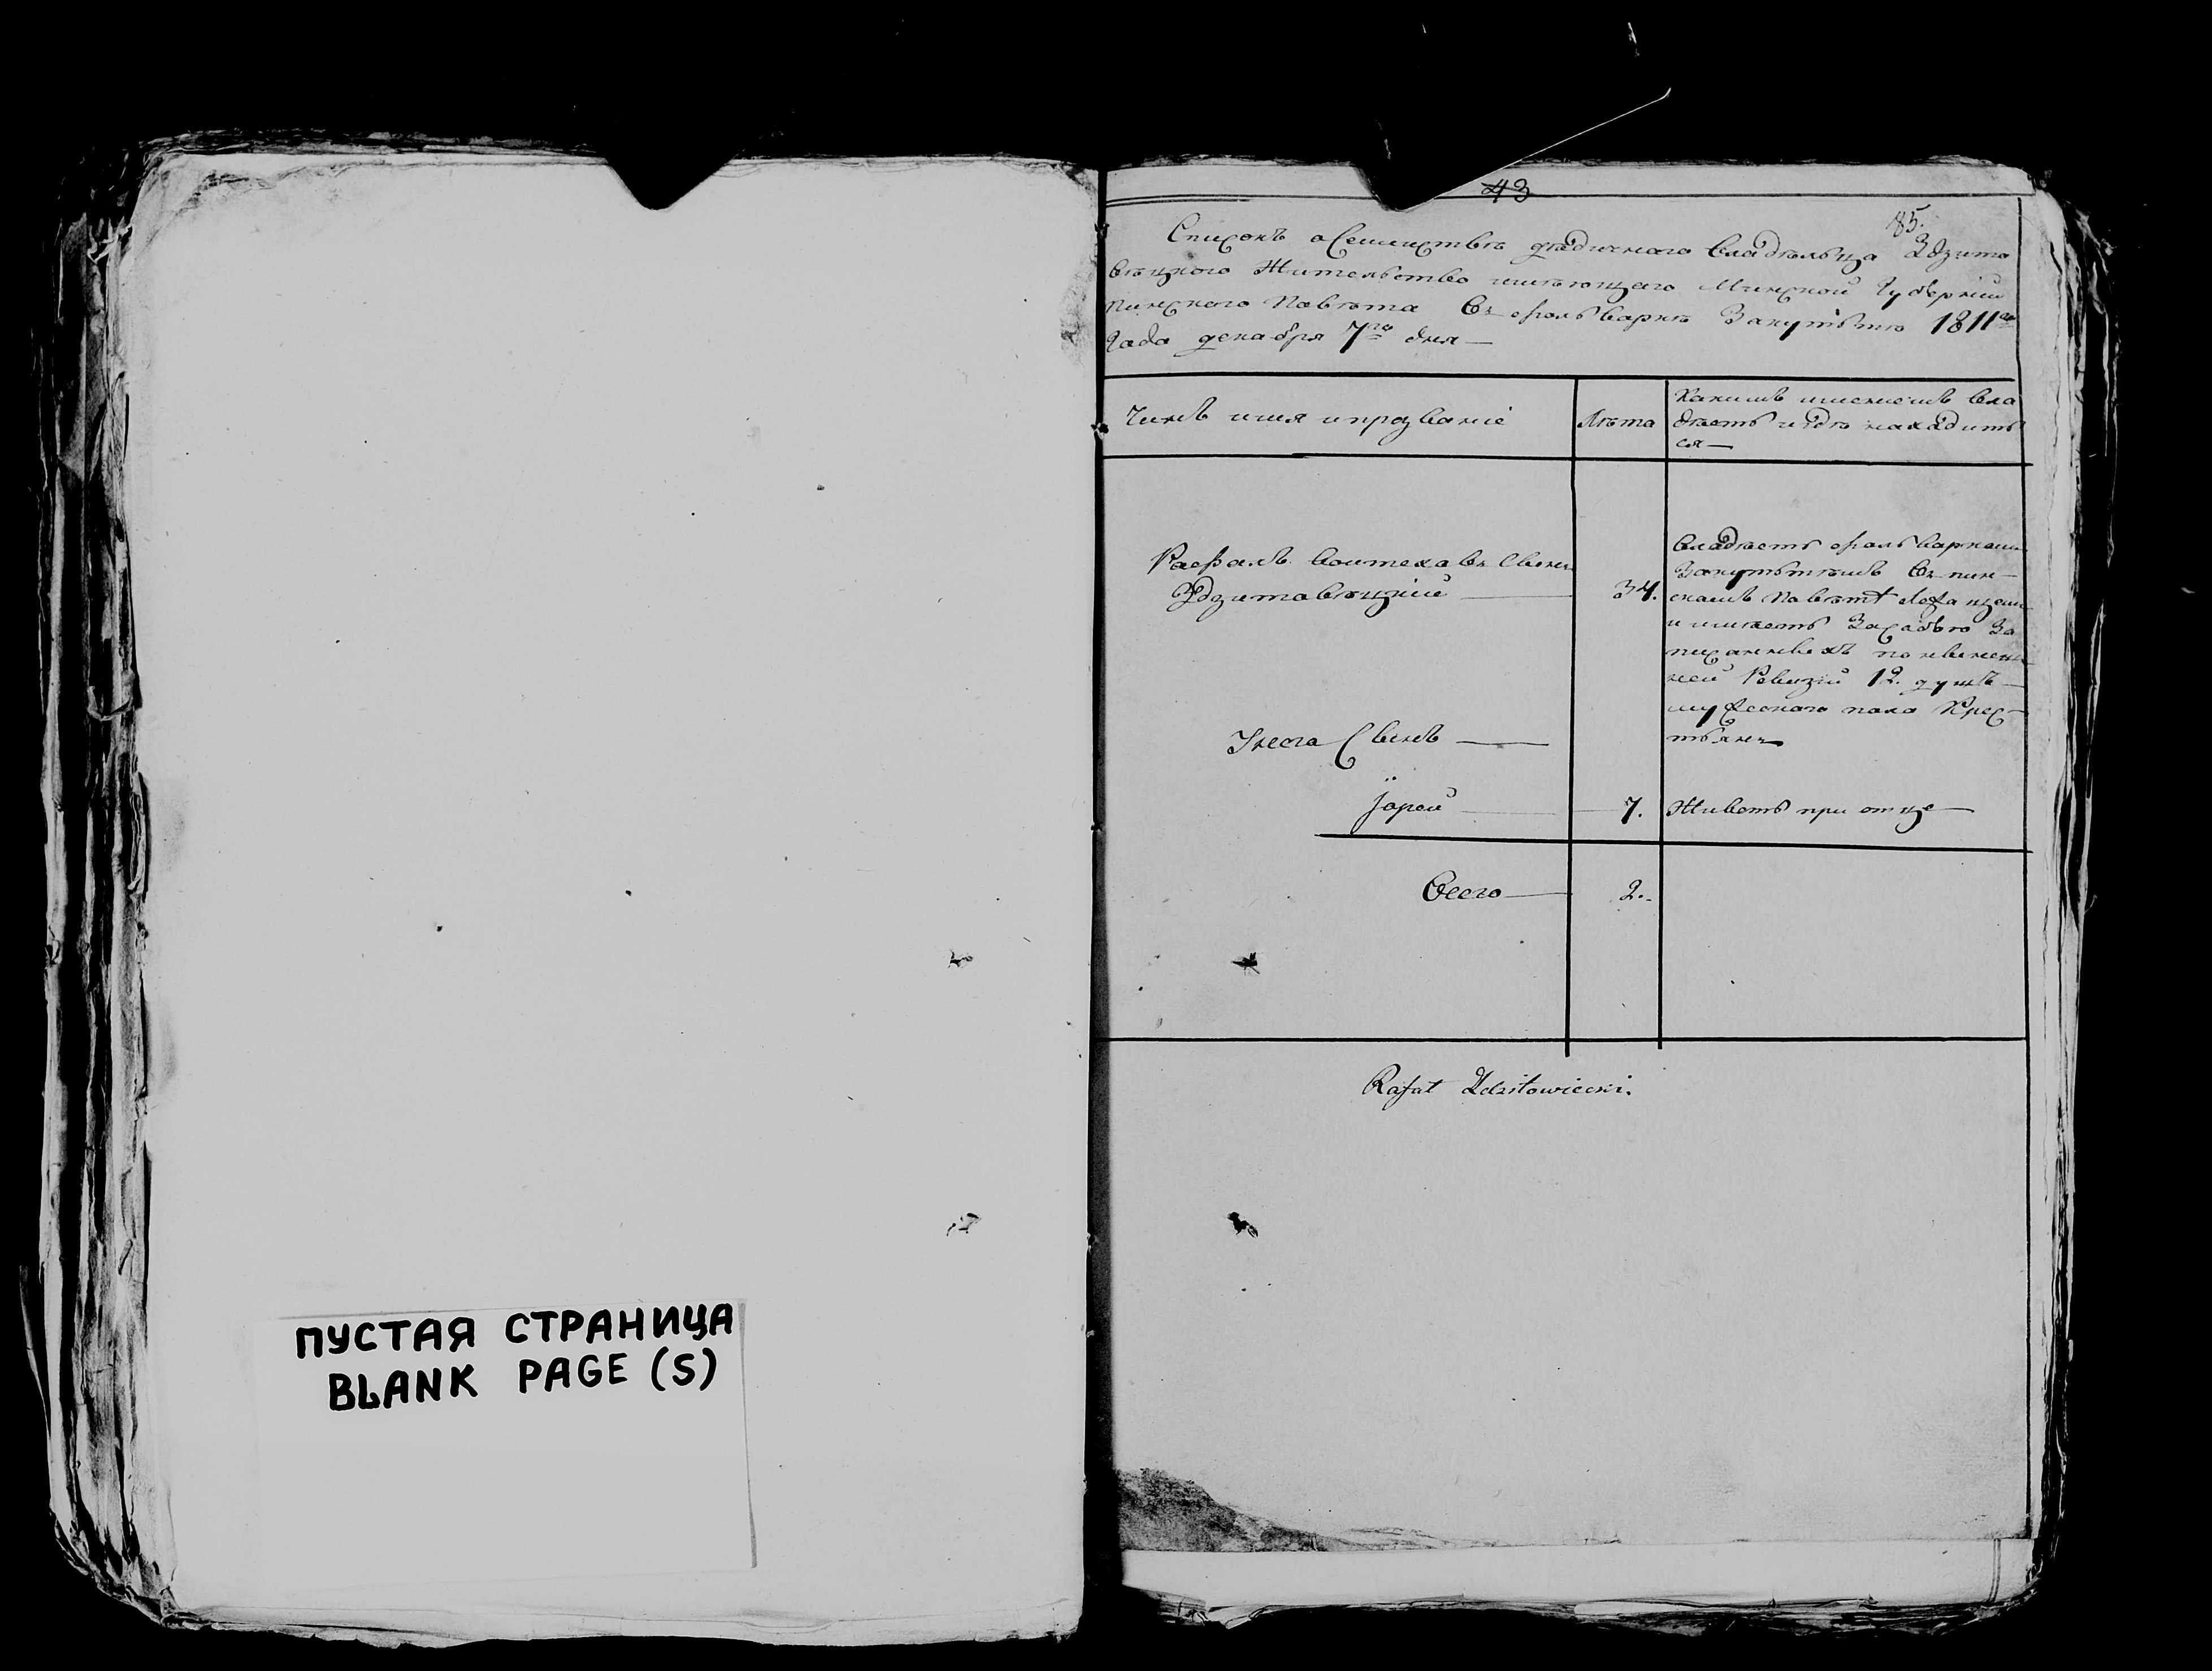 43
85.
Списокъ о Семействѣ дѣдичного владѣльца Здзито
вѣцкого Жительство имѣющаго Минской Губерніи
Пинского Повѣта въ фольваркѣ Закутьтю 1811го
Года декабря 7го дня
Чинъ имя и прозваніе
Лѣта
Какимъ имениемъ вла
дѣетъ и гдѣ находить
ся
Рафалъ Войтеховъ Сынъ
Здзитовѣцкій
34.
владѣетъ фольваркомъ
Закутьтѣмъ въ пин
скомъ Повѣтѣ
и имѣетъ За собою За
писанныхъ по нынеш
ней Ревизіи 12. душъ
мужеского пола Крес
тьянъ
У него Сынъ
Іорей
7.
Живетъ при отце
Всего
2.
Rafał Zdzitowiecki.
ПУСТАЯ СТРАНИЦА
BLANK PAGE (S)